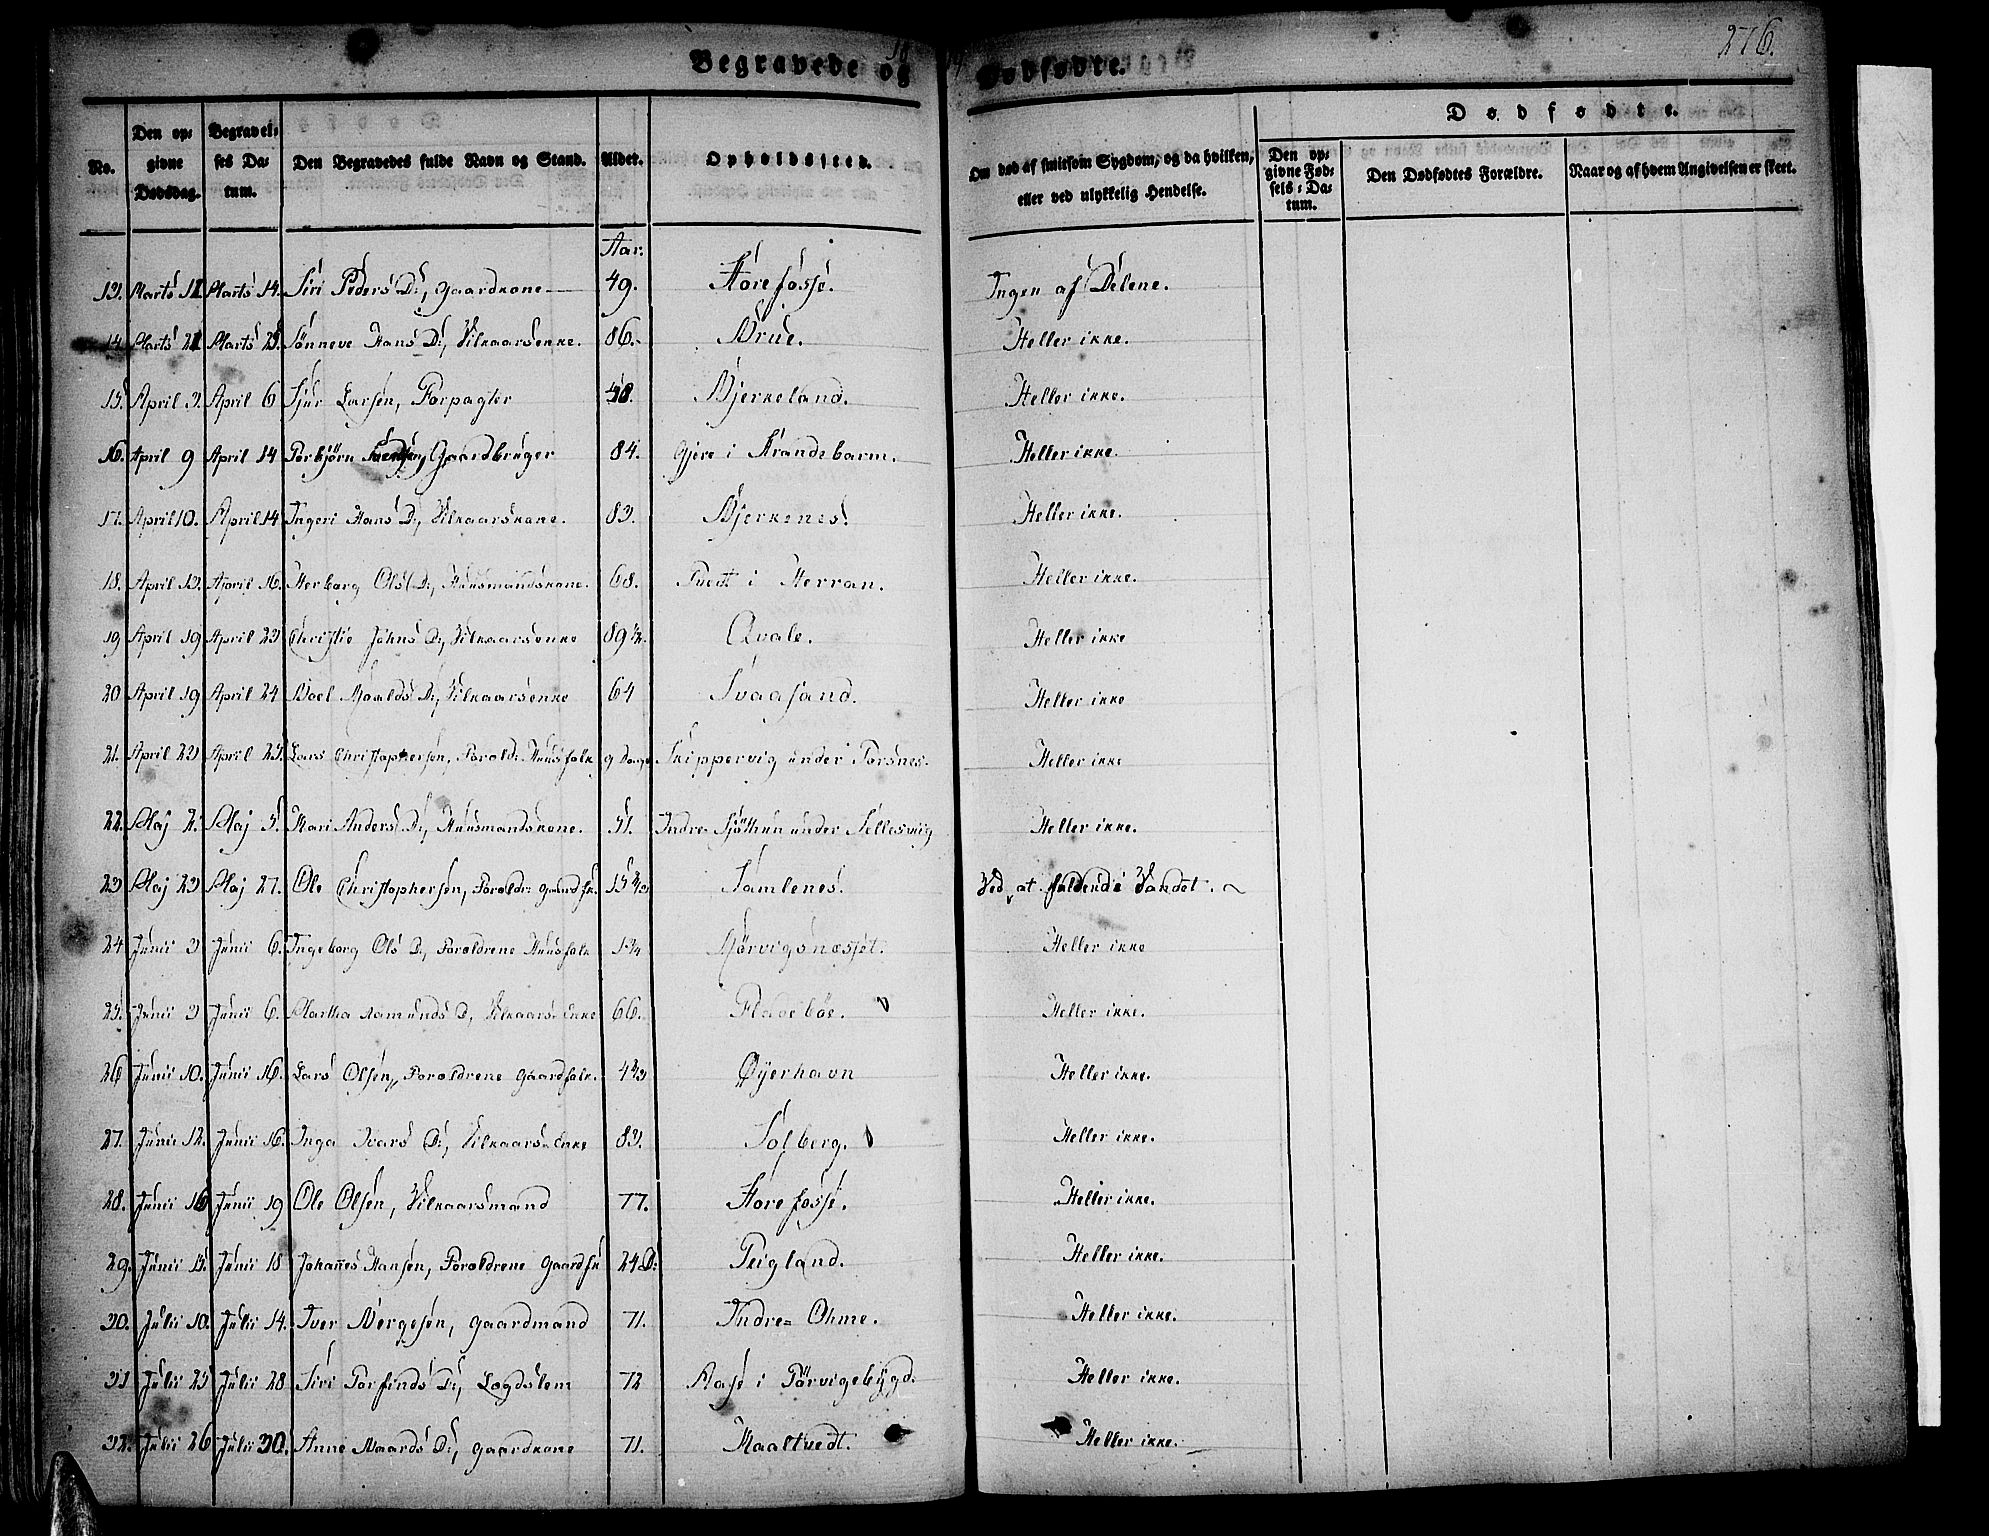 Begravede og Dødfødte.
276.
No. | Den opgivne Dødsdag. | Begravelses Datum. | Den Begravedes fulde Navn og Stand. | Alder. | Opholdssted. | Om død af smitsom Sygdom, og da hvilken, eller ved ulykkelig Hendelse. | Dødfødte. Den opgivne Fødsels-Datum. | Den Dødfødtes Forældre. | Naar og af hvem Angivelsen er skeet.
Aar.
13. Marts 11 Marts 14. Siri Peders D:, Gaardkone 49. Storefosse. Ingen af Delene.
14. Marts 21 Marts Sønneve Hans D:, Vilkaarsenke. 86. Brue. Heller ikke.
15. April 3. April 6 Sjur Larsen, Forpagter Bjerkeland. Heller ikke.
16. April 9 April 14 Torbjørn Gaardbruger 84. Gjere i Strandebarm. Heller ikke.
17. April 10. April 14 Ingeri Hans D:, Vilkaarskone. 83. Bjerkenes. Heller ikke.
18. April 13. April 16. Herborg Ols D:, Huusmandskone. 68. Tvedt i Herran. Heller ikke.
19 April 19 April 23 Christie Johns D:, Vilkaarsenke 89 1/2. Qvale. Heller ikke
20 April 19 April 24 Boel D:, Vilkaarsenke 64 Svaasand. Heller ikke
21. April 23 April 27. Lars Christophersen, Forældr: Huusfolk 9 Dage Skippervig under Torsnes. Heller ikke
22. Maj 2. Maj 5. Mari Anders D:, Huusmandskone. 51. Indre Sjøthun under Sellesvig Heller ikke.
23 Maj 23 Maj 27. Ole Christophersen, Forældr: Gaardfk. 15 Samlenes. Ved at falde i Vandet.
24 Junii 3 Junii 6. Ingeborg Ols D:, Forældrene Huusfolk 1 3/4 Mørvigsnesset. Heller ikke
25. Junii 3 Junii 6. Martha Aamunds D, Vilkaars-Enke 66. Fladebøe. Heller ikke.
26 Junii 10. Junii 16. Lars Olsen, Forældrene Gaardfolk. Øyerhavn Heller ikke.
27. Junii 12. Junii 16. Inga Ivars D:, Vilkaars-Enke 83. Solberg. Heller ikke.
28. Junii 16 Junii 19 Ole Olsen, Vilkaarsmand 77. Storefosse. Heller ikke.
29. Junii 13. Junii 18 Johannes Hansen, Forældrene Gaardfk 24 D: Teigland. Heller ikke.
30. Julii 10. Julii 14. Iver Børgesen, Gaardmand 71. Indre- Ohme. Heller ikke.
31 Julii 23 Julii 28 Siri Torfinds D:, Lægdslem 72 Aase i Tørvigebygd. Heller ikke.
32. Julii 26 Julii 30. Anne Baards D:, Gaardkone 71. Maaltvedt. Heller ikke.